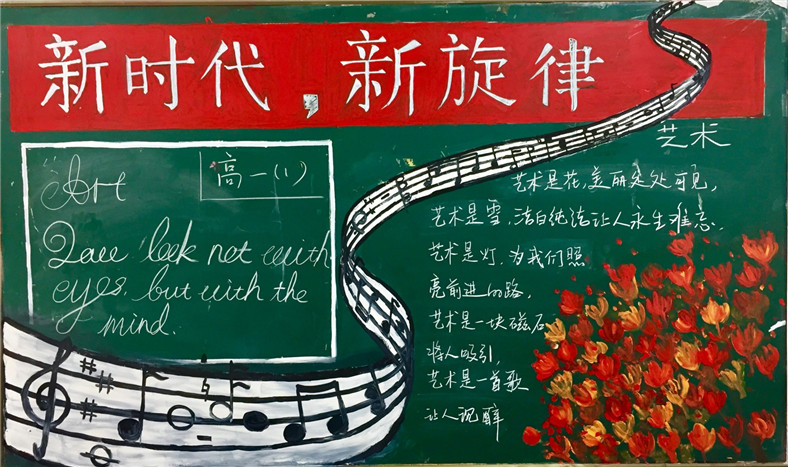 新时代，新旋律
Art
高一(1)
look not with
eyes, but with the
mind.
艺术
艺术是花，美丽处处可见，
艺术是雪，洁白纯洁让人永生难忘.
艺术是灯，为我们照
亮前进的路，
艺术是一块磁石
将人吸引，
艺术是一首歌
让人沉醉